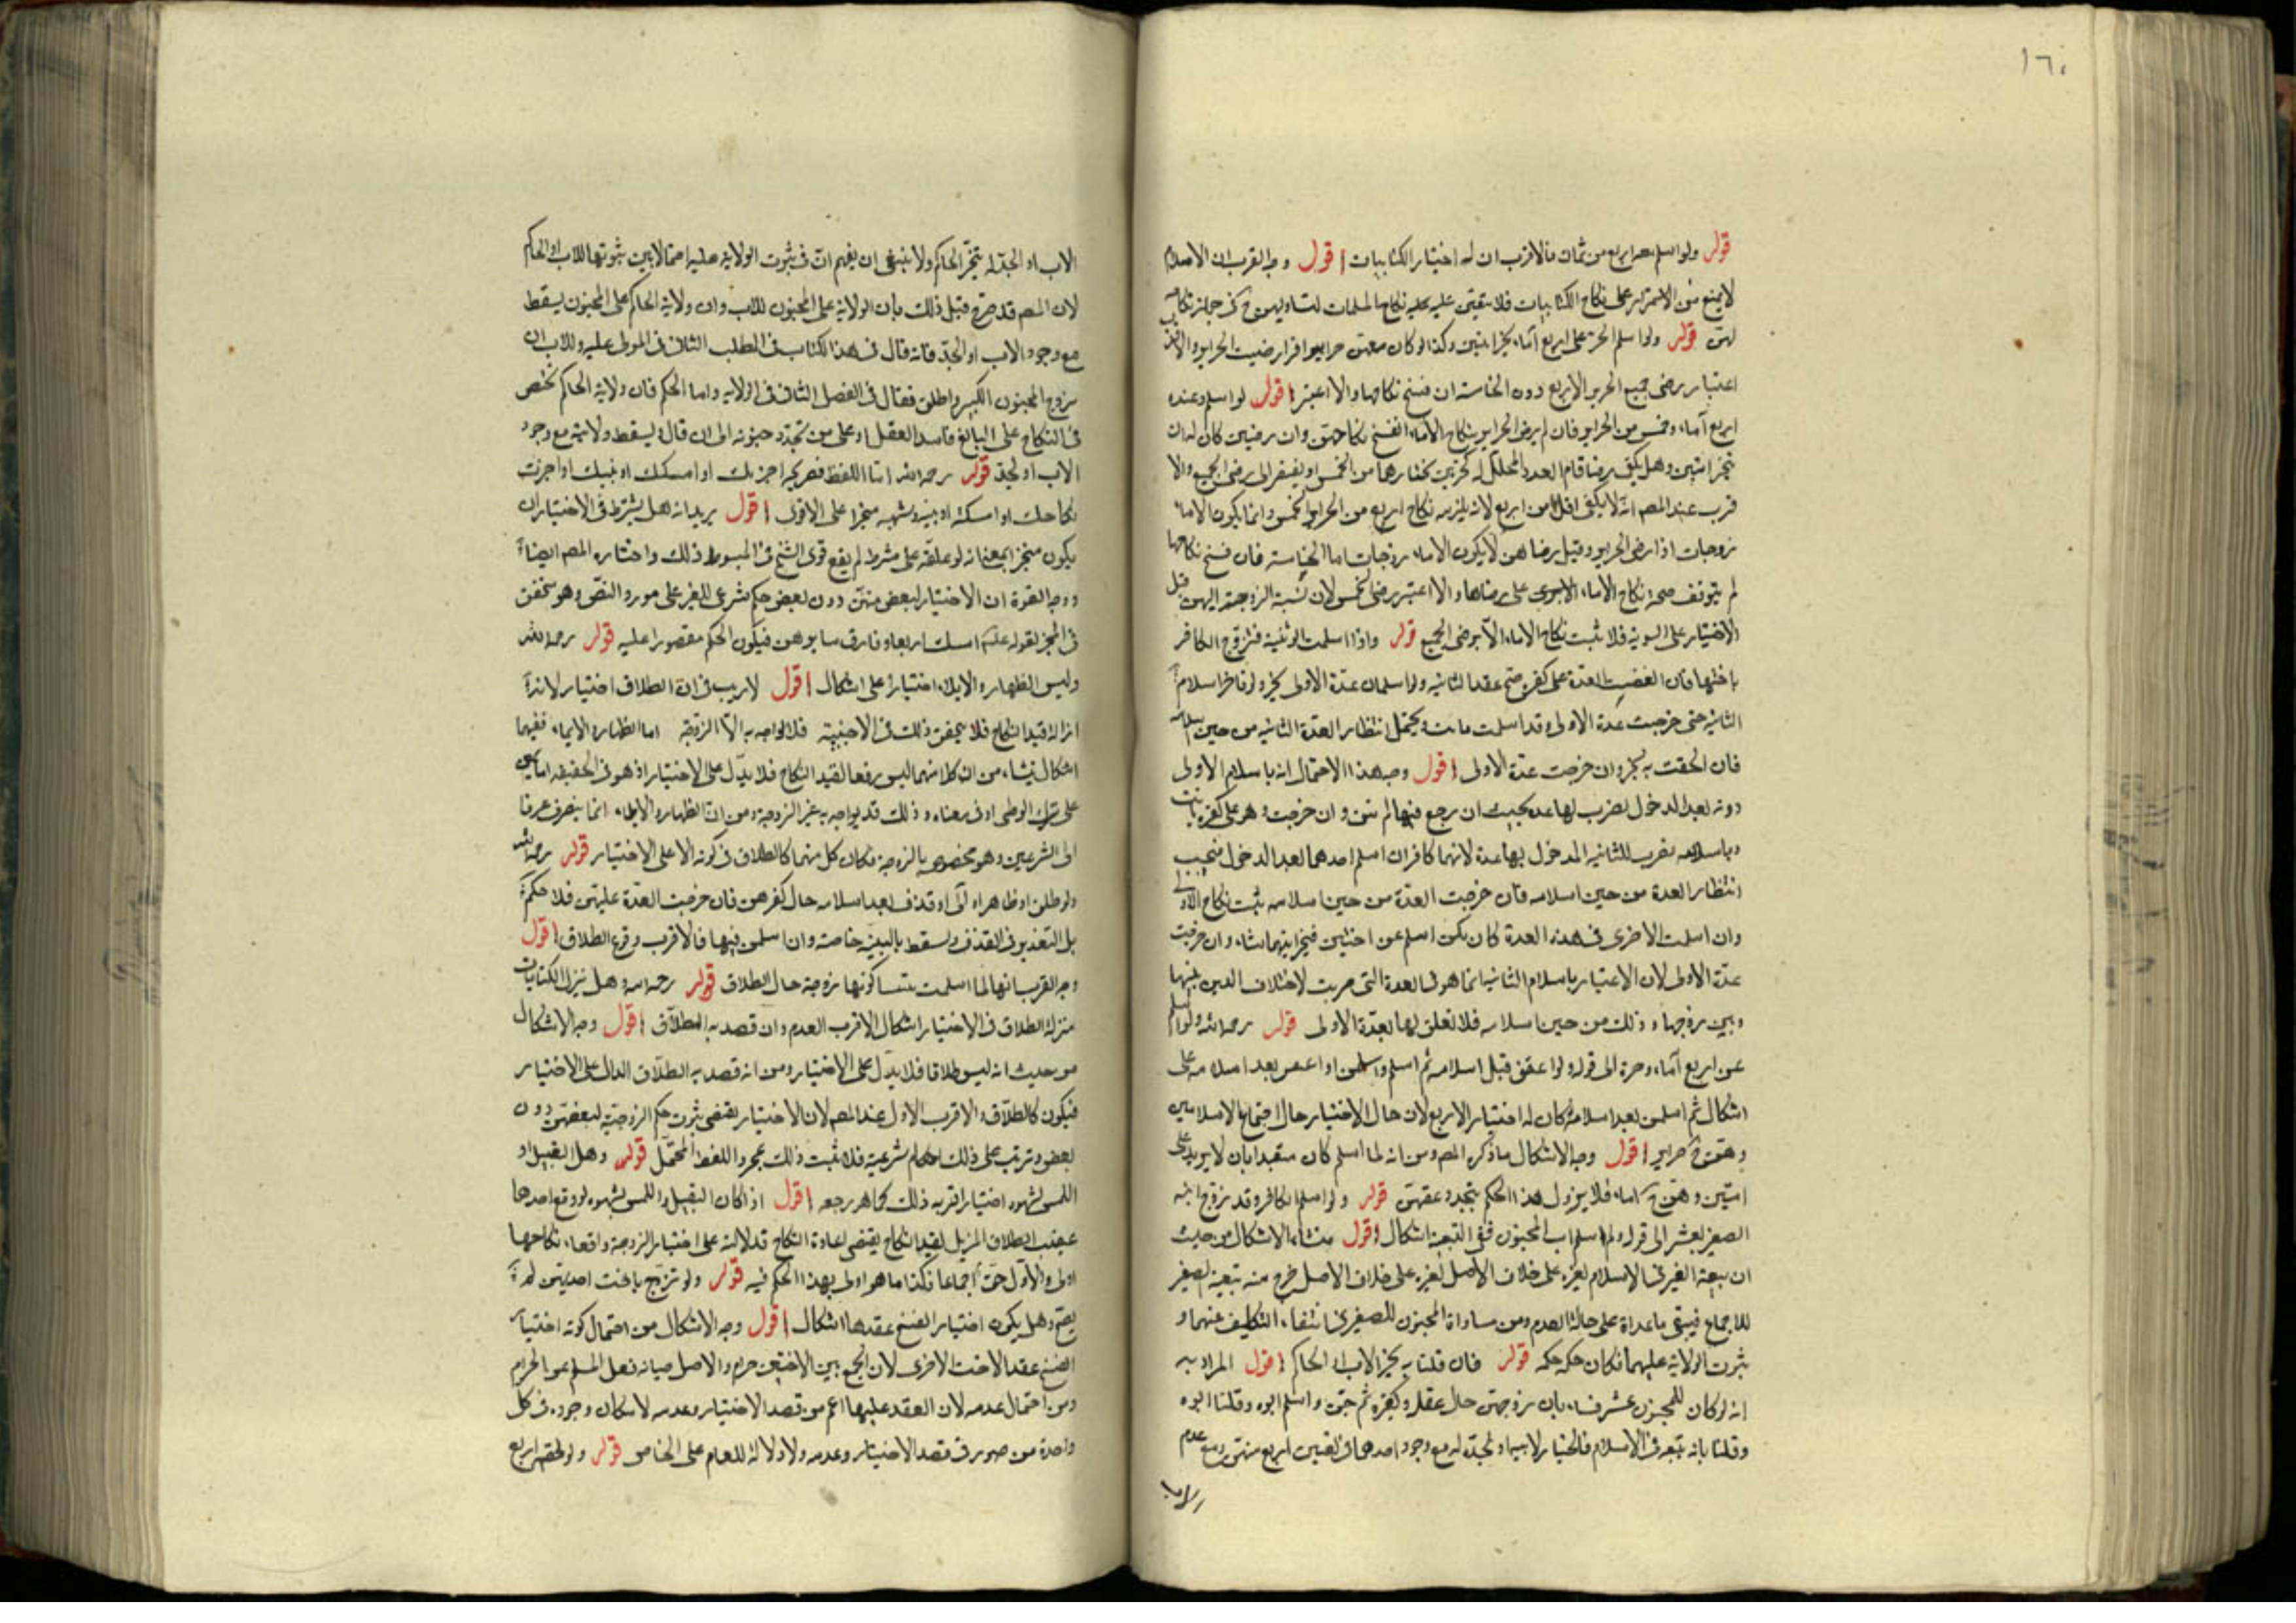 ١٦٠
قوله ولو اسلم معه اربع من ثمان فالاقرب ان له اختيار الكتابيات اقول وجه القرب ان الاسلام
لا يمنع من الاستمرار على نكاح الكتابيات فلا يتعين عليه نكاح المسلمات لتساويهن في جواز نكاحه
لهن قوله ولو اسلم الحر على اربع آماء تخير اثنتين وكذا لو كان معهن حراير او اقل ورضيت الحراير والاقرب
اعتبار رضى جميع الحراير الاربع دون الخامسة ان فسخ نكاحها والا اعتبر اقول لو اسلم وعنده
اربع آماء وخمس من الحراير فان لم يرض الحراير بنكاح الاماء انفسخ نكاحهن وان رضين كان له ان
يتخير اثنتين وهل يكفي رضا تمام العدد المحلل له كحرتين يختارهما من الخمس او يفتقر الى رضى الجميع والا
قرب عند المصم انه لا يكفي اقل من اربع لانه يلزمه نكاح اربع من الحراير الخمس وانما يكون الاماء
زوجات اذا رضى الحراير وقبل رضاهن لا يكون الاماء زوجات اما الخامسة فان فسخ نكاحها
لم يتوقف صحة نكاح الاماء على رضاها والا اعتبر رضى الخمس لان نسبة الزوجية اليهن قبل
الاختيار على السوية فلا يثبت نكاح الاماء الا برضى الجميع قوله واذا اسلمت الوثنية فتزوج الكافر
باختها فان انقضت العدة على كفره صح عقد الثانية ولو اسلما في عدة الاولى تخير ولو تاخر اسلام
الثانية حتى خرجت عدة الاولى وقد اسلمت بانت ويحتمل انتظار العدة الثانية من حين اسلامه
فان لحقت به تخير وان خرجت عدة الاولى اقول وجه هذا الاحتمال انه باسلام الاولى
دونه بعد الدخول يضرب لها عدة بحيث ان رجع فيها لم تبن وان خرجت وهو على كفره بانت
وباسلامه يضرب للثانية المدخول بها عدة لانهما كافران اسلم احدهما بعد الدخول فيجب
انتظار العدة من حين اسلامه فان خرجت العدة من حين اسلامه ثبت نكاح الاولى
وان اسلمت الاخرى في هذه العدة كان كمن اسلم عن اختين فيتخير ايتهما شاء وان خرجت
عدة الاولى لان الاعتبار باسلام الثانية انما هو في العدة التي ضربت لاختلاف الدين بينها
وبين زوجها وذلك من حين اسلامه فلا تعلق لها بعدة الاولى قوله رحمه الله ولو اسلم
عن اربع آماء وحرة الى قوله ولو اعتقن قبل اسلامه ثم اسلم واسلمن او اعتقن بعد اسلامه على
اشكال ثم اسلمن بعد اسلامه كان له اختيار الاربع لان حال الاختيار حال اجتماع الاسلامين
وهن ح حراير اقول وجه الاشكال ما ذكره المصم ومن انه لما اسلم كان متعبدا بان لا يزيد على
امتين وهن ح اماء فلا يزول هذا الحكم بتجدد عتقهن قوله ولو اسلم الكافر وقد تزوج ابنه
الصغير بعشر الى قوله ولو اسلم اب المجنون ففي التبعية اشكال اقول منشاء الاشكال من حيث
ان تبعية الغير في الاسلام لغيره على خلاف الاصل خرج منه تبعية الصغير
للاجماع فيبقى ما عداه على حالة العدم ومن مساواة المجنون للصغير في انتفاء التكليف عنهما و
ثبوت الولاية عليهما فكان حكمه حكمه قوله فان قلنا به تخير الاب او الحاكم اقول المراد به
انه لو كان للمجنون عشر نساء بان زوجهن حال عقله وكفره ثم جن واسلم ابوه وقلنا
وقلنا بانه يتبعه في الاسلام فالخيار لابيه او لجده له مع وجود احدهما في تعيين اربع منهن ومع عدم
الاب
الاب او الجد له يتخير الحاكم ولا ينبغي ان يفهم ان في ثبوت الولاية عليه احتمالا بين ثبوتها للاب او الحاكم
لان المصم قد صرح قبل ذلك بان الولاية على المجنون للاب وان ولاية الحاكم على المجنون يسقط
مع وجود الاب او الجد فانه قال في هذا الكتاب في المطلب الثاني في المولى عليه وللاب ان
يزوج المجنون الكبير واطلق فقال في الفصل الثاني في الولاية واما الحكم فان ولاية الحاكم تختص
في النكاح على البالغ فاسد العقل او على من تجدد جنونه الى ان قال ويسقط ولايته مع وجود
الاب او الجد قوله رحمه الله اما اللفظ فصريحه اخترتك او امسكتك او ثبتك او اخترت
نكاحك او امسكته او ثبته وشبهه منجزا على الاقوى اقول يريد انه هل يشترط في الاختيار ان
يكون منجزا بمعنى انه لو علقه على شرط لم يقع قوى الشيخ في المبسوط ذلك واختاره المصم ايضا
ووجه القوة ان الاختيار لبعض منهن دون بعض حكم شرعي فيقتصر على مورد النص وهو متحقق
في المنجز لقوله عليه السلام امسك اربعا وفارق سايرهن فيكون الحكم مقصورا عليه قوله رحمه الله
وليس الظهار والايلاء اختيارا على اشكال اقول لا ريب في ان الطلاق اختيار لانه
ازالة قيد النكاح فلا يتحقق ذلك في الاجنبية فلا يواجه به الا الزوجة اما الظهار والايلاء ففيهما
اشكال ينشاء من ان كلا منهما ليس رفعا لقيد النكاح فلا يدل على الاختيار اذ هو في الحقيقة
على ترك الوطى او في معناه وذلك قد يواجه به غير الزوجة ومن ان الظهار والايلاء انما ينصرف عرفا
الى الشرعيين وهو مخصوص بالزوجة فكان كل منهما كالطلاق في كونه دالا على الاختيار قوله رحمه الله
ولو طلق او ظاهر او آلى او قذف بعد اسلامه حال كفرهن فان خرجت العدة عليهن فلا حكم
بل التعزير في القذف ويسقط بالبينة خاصة وان اسلمن فيها فالاقرب وقوع الطلاق اقول
وجه القرب انها لما اسلمت تبينا كونها زوجة حال الطلاق قوله رحمه الله وهل تنزل الكنايات
منزلة الطلاق في الاختيار اشكال الاقرب العدم وان قصد به الطلاق اقول وجه الاشكال
من حيث انه ليس طلاقا فلا يدل على الاختيار ومن انه قصد به الطلاق الدال على الاختيار
فيكون كالطلاق والاقرب الاول عند المصم لان الاختيار يقتضي ثبوت حكم الزوجية لبعضهن دون
بعض وترتب على ذلك احكام شرعية فلا يثبت ذلك بمجرد اللفظ المحتمل قوله وهل التقبيل او
اللمس بشهوة اختيار اقربه ذلك كما هو رجعة اقول اذا كان التقبيل واللمس بشهوة لو وقع احدهما
عقيب الطلاق المزيل لقيد النكاح يقتضي اعادة النكاح فدلالته على اختيار الزوجة وابقاء نكاحها
اولى والاول حق اجماعا فكذا ما هو اولى بهذا الحكم فيه قوله ولو تزوج باخت احديهن لم
يصح وهل يكون اختيار الفسخ عقدها اشكال اقول وجه الاشكال من احتمال كونه اختيار
لفسخ عقد الاخت الاخرى لان الجمع بين الاختين حرام والاصل صيانة فعل المسلم عن الحرام
ومن احتمال عدمه لان العقد عليها اعم من قصد الاختيار وعدمه لامكان وجوده في كل
واحدة من صورتي قصد الاختيار وعدمه ولا دلالة للعام على الخاص قوله ولو لحقه اربع